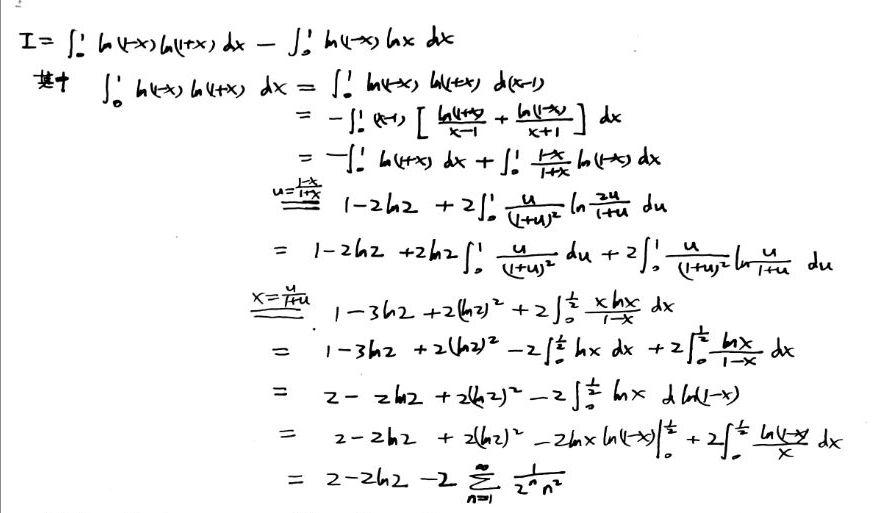 I = ∫₀¹ ln(1-x) ln(1+x) dx - ∫₀¹ ln(1-x) lnx dx
其中 ∫₀¹ ln(1-x) ln(1+x) dx = ∫₀¹ ln(1-x) ln(1+x) d(x-1)
= -∫₀¹ (x-1) [ ln(1+x)/(x-1) + ln(1-x)/(x+1) ] dx
= -∫₀¹ ln(1+x) dx + ∫₀¹ (1-x)/(1+x) ln(1-x) dx
u=(1-x)/(1+x) == 1-2ln2 + 2∫₀¹ u/(1+u)² ln 2u/(1+u) du
= 1-2ln2 +2ln2 ∫₀¹ u/(1+u)² du + 2∫₀¹ u/(1+u)² ln u/(1+u) du
x=u/(1+u) == 1-3ln2 +2(ln2)² + 2∫₀^(1/2) xlnx/(1-x) dx
= 1-3ln2 +2(ln2)² -2∫₀^(1/2) lnx dx +2∫₀^(1/2) lnx/(1-x) dx
= 2- 2ln2 + 2(ln2)² -2∫₀^(1/2) lnx d ln(1-x)
= 2-2ln2 + 2(ln2)² -2lnx ln(1-x)|₀^(1/2) + 2∫₀^(1/2) ln(1-x)/x dx
= 2-2ln2 -2 ∑_(n=1)^∞ 1/(2ⁿn²)